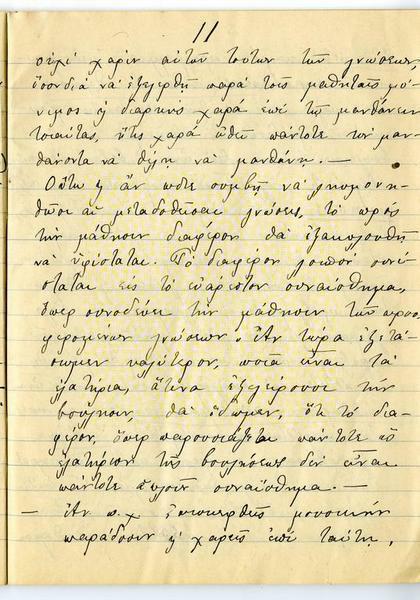 11
οὐχὶ χάριν αὐτῶν τούτων τῶν γνώσεων,
ὅσον διὰ νὰ ἐξεγερθῇ παρὰ τοῖς μαθηταῖς μό-
νιμος ἢ διαρκὴς χαρὰ ἐπὶ τῆς μανθάνειν
τοιαύτας, ἥτις χαρὰ ὠθεῖ πάντοτε τὸν μαν-
θάνοντα νὰ θέλῃ νὰ μανθάνῃ. —
Οὕτω κ' ἂν ὧδε συμβῇ νὰ λησμονη-
θῶσι αἱ μεταδοθεῖσαι γνώσεις, τὸ πρὸς
τὴν μάθησιν διαφέρον θὰ ἐξακολουθῇ
νὰ ὑφίσταται. Τὸ διαφέρον λοιπὸν συνί-
σταται εἰς τὸ εὐάρεστον συναίσθημα,
ὅπερ συνοδεύει τὴν μάθησιν τῶν προσ-
φερομένων γνώσεων. Ἂν τώρα ἐξετά-
σωμεν καλύτερον, ποῖα εἶναι τὰ
ἐλατήρια, ἅτινα ἐξεγείρουσι τὴν
βούλησιν, θὰ ἴδωμεν, ὅτι τὸ δια-
φέρον, ὅπερ παρουσιάζεται πάντοτε ὡς
ἐλατήριον τῆς βουλήσεως δὲν εἶναι
πάντοτε ἁπλοῦν συναίσθημα. —
— Ἂν π.χ. μουσικὴν
παράδοσιν κ' χαρεῖς ἐπὶ ταύτῃ,